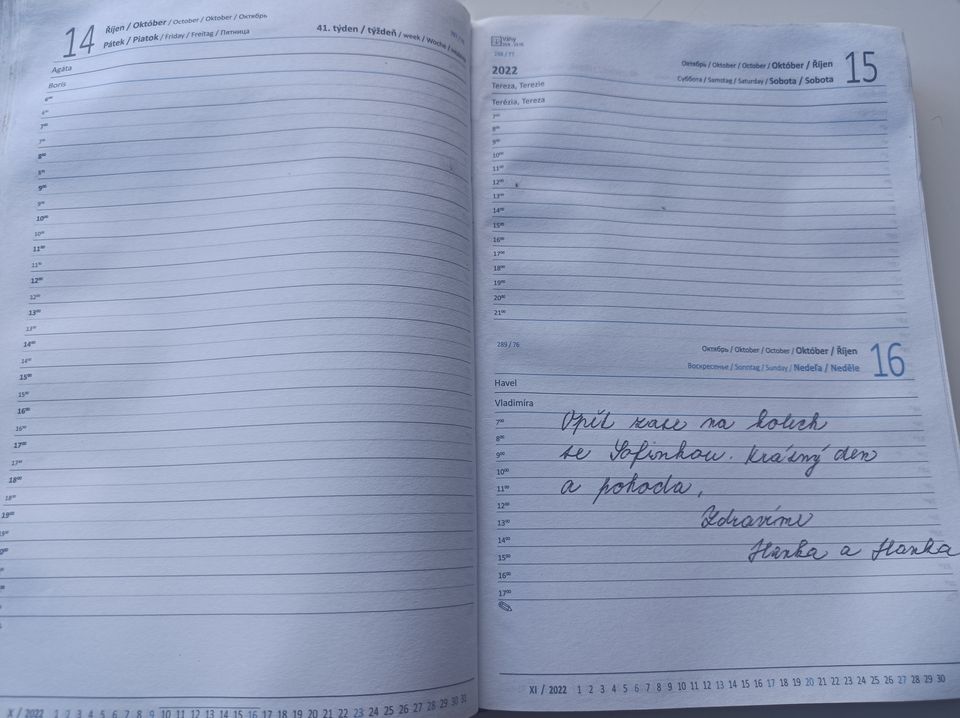 14
Říjen / Október / October / Oktober / Октябрь
Pátek / Piatok / Friday / Freitag / Пятница
41. týden / týždeň / week / Woche /
Agáta
Boris
6⁰⁰
7⁰⁰
8⁰⁰
9⁰⁰
10⁰⁰
11⁰⁰
12⁰⁰
13⁰⁰
14⁰⁰
15⁰⁰
16⁰⁰
17⁰⁰
18⁰⁰
19⁰⁰
X / 2022 1 2 3 4 5 6 7 8 9 10 11 12 13 14 15 16 17 18 19 20 21 22 23 24 25 26 27 28 29 30 31
Váhy
288 / 77
2022
Октябрь / Oktober / October / Október / Říjen
Суббота / Samstag / Saturday / Sobota / Sobota
15
Tereza, Terezie
Terézia, Tereza
7⁰⁰
8⁰⁰
9⁰⁰
10⁰⁰
11⁰⁰
12⁰⁰
13⁰⁰
14⁰⁰
15⁰⁰
16⁰⁰
17⁰⁰
18⁰⁰
19⁰⁰
20⁰⁰
21⁰⁰
289 / 76
Октябрь / Oktober / October / Október / Říjen
Воскресенье / Sonntag / Sunday / Nedeľa / Neděle
16
Havel
Vladimíra
7⁰⁰
8⁰⁰
9⁰⁰
10⁰⁰
11⁰⁰
12⁰⁰
13⁰⁰
14⁰⁰
15⁰⁰
16⁰⁰
17⁰⁰
Opět zase na kolech
se Sofinkou. Krásný den
a pohoda.
Zdravíme
Hanka a Hanka
XI / 2022 1 2 3 4 5 6 7 8 9 10 11 12 13 14 15 16 17 18 19 20 21 22 23 24 25 26 27 28 29 30